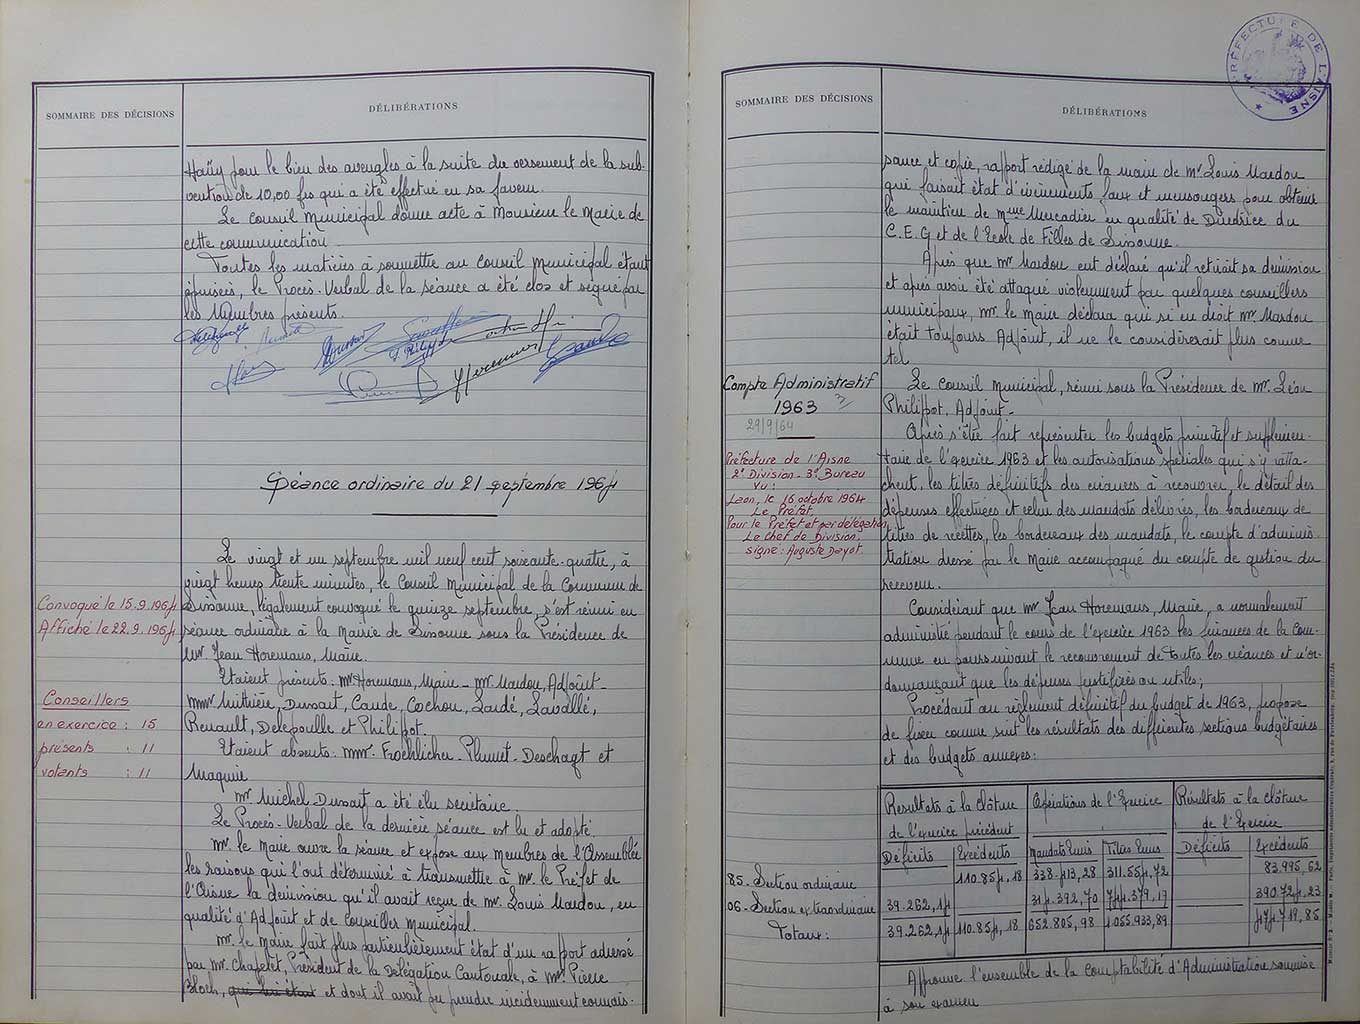 SOMMAIRE DES DÉCISIONS
DÉLIBÉRATIONS
Haüy pour le bien des aveugles à la suite du versement de la sub-
vention de 10,00 frs qui a été effectué en sa faveur.
Le Conseil Municipal donne acte à Monsieur le Maire de
cette communication
Toutes les matières à soumettre au Conseil Municipal étant
épuisées, le Procès-Verbal de la séance a été clos et signé par
les Membres présents.
Séance ordinaire du 21 septembre 1964
Le vingt et un septembre mil neuf cent soixante-quatre, à
vingt heures trente minutes, le Conseil Municipal de la Commune de
Convoqué le 15.9.1964
Sissonne, légalement convoqué le quinze septembre, s'est réuni en
Affiché le 22.9.1964
séance ordinaire à la Mairie de Sissonne sous la Présidence de
Mr. Jean Horemans, Maire.
Etaient présents: Mr Horemans, Maire - Mr. Mardou, Adjoint -
Conseillers
en exercice : 15
présents : 11
votants : 11
Mmrs Mittière, Dussart, Caude, Cochou, Lardé, Lavallé,
Renault, Delepoulle et Philippot.
Etaient absents: MMrs. Froehlicher - Plumet - Deschagt et
Maquin
Mr Michel Dussart a été élu secrétaire.
Le Procès-Verbal de la dernière séance est lu et adopté.
Mr. le Maire ouvre la séance et expose aux membres de l'Assemblée
les raisons qui l'ont déterminé à transmettre à Mr. le Préfet de
l'Aisne la démission qu'il avait reçue de Mr. Louis Mardou, en
qualité d'Adjoint et de Conseiller Municipal.
Mr. le Maire fait plus particulièrement état d'un rapport adressé
par Mr. Chapelet, Président de la Délégation Cantonale, à Mr. Pierre
Bloch, qui lui était et dont il avait pu prendre incidemment connais-
PRÉFECTURE DE L'AISNE
SOMMAIRE DES DÉCISIONS
DÉLIBÉRATIONS
sance et copie, rapport rédigé de la main de Mr. Louis Mardou
qui faisait état d'évènements faux et mensongers pour obtenir
le maintien de Mme Mercadier en qualité de Directrice du
C.E.G et de l'Ecole de Filles de Sissonne.
Après que Mr. Mardou eut déclaré qu'il retirait sa démission
et après avoir été attaqué violemment par quelques conseillers
municipaux, Mr. le Maire déclara que si en droit Mr. Mardou
était toujours Adjoint, il ne le considèrerait plus comme
tel.
Compte Administratif
1963
29/9/64
Le Conseil Municipal, réuni sous la Présidence de Mr. Léon
Philippot, Adjoint -
Après s'être fait représenter les budgets primitif et supplémen-
Préfecture de l'Aisne
2e Division - 3e Bureau
Vu :
Laon, le 16 octobre 1964
Le Préfet,
Pour le Préfet et par délégation,
Le Chef de Division,
signé : Auguste Dayot.
taire de l'exercice 1963 et les autorisations spéciales qui s'y ratta-
chent, les titres définitifs des créances à recouvrer, le détail des
dépenses effectuées et celui des mandats délivrés, les bordereaux de
titres de recettes, les bordereaux des mandats, le compte d'adminis-
tration dressé par le Maire accompagné du compte de gestion du
receveur.
Considérant que Mr. Jean Horemans, Maire, a normalement
administré pendant le cours de l'exercice 1963 les finances de la Com-
mune en poursuivant le recouvrement de toutes les créances et n'or-
donnançant que les dépenses justifiées ou utiles;
Procédant au règlement définitif du budget de 1963, propose
de fixer comme suit les résultats des différentes sections budgétaires
et des budgets annexes:
Résultats à la clôture de l'exercice précédent
Opérations de l'Exercice
Résultats à la clôture de l'Exercice
Déficits Excédents Mandats Emis Titres Emis Déficits Excédents
85. Section ordinaire 110.854,18 338.413,28 311.554,72 83.995,62
06. Section extraordinaire 39.262,24 314.392,70 744.379,17 390.724,23
Totaux: 39.262,24 110.854,18 652.805,98 1.055.933,89 474.719,85
Approuve l'ensemble de la comptabilité d'Administration soumise
à son examen